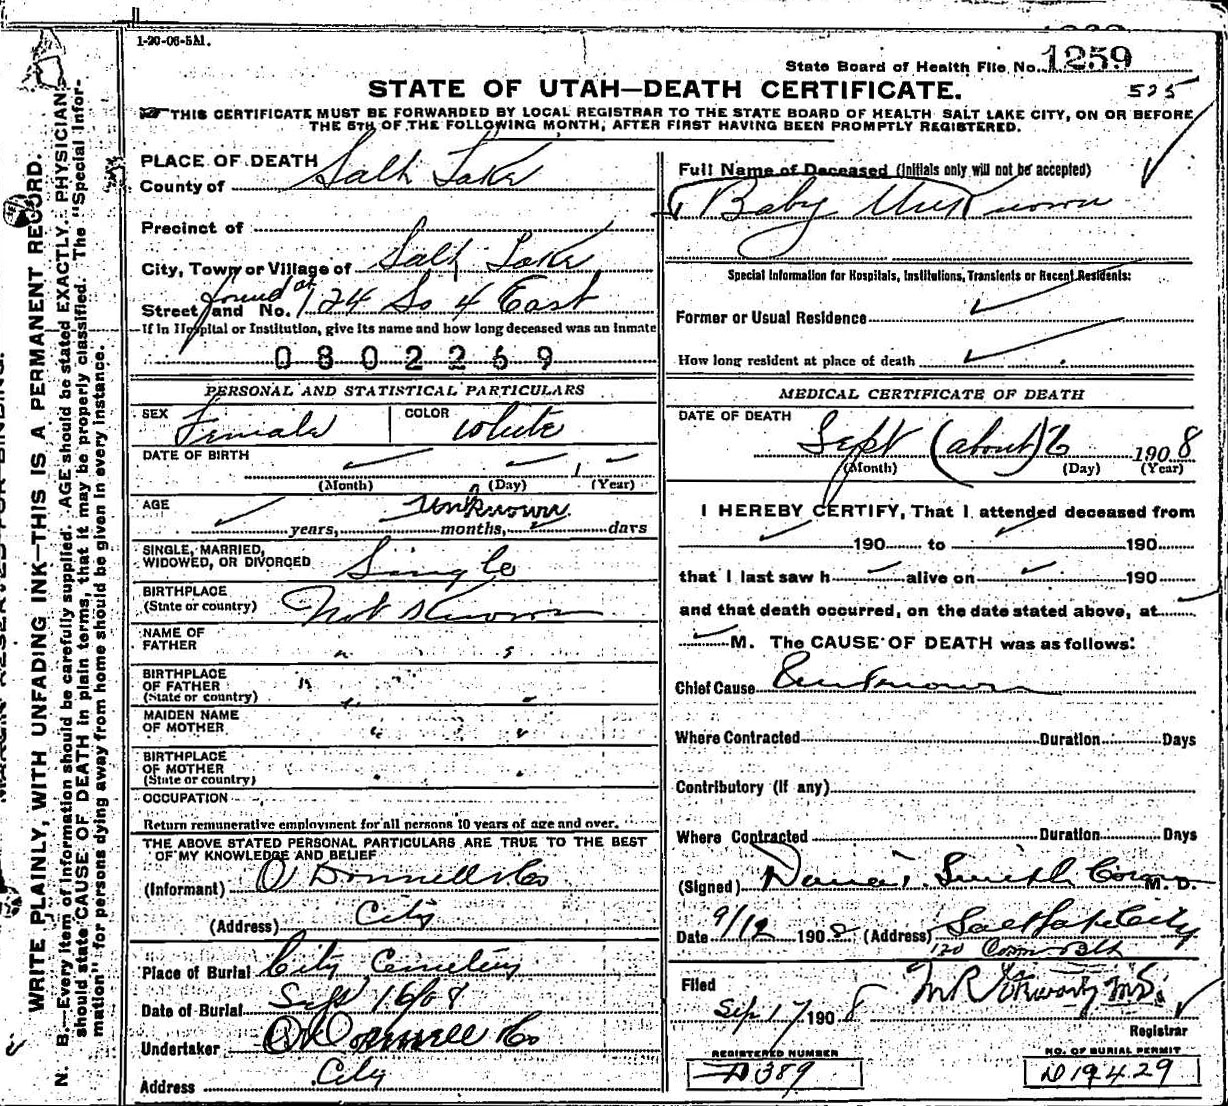 1-20-06-5M.
State Board of Health File No. 1259
STATE OF UTAH—DEATH CERTIFICATE.
525
THIS CERTIFICATE MUST BE FORWARDED BY LOCAL REGISTRAR TO THE STATE BOARD OF HEALTH SALT LAKE CITY, ON OR BEFORE
THE 5TH OF THE FOLLOWING MONTH, AFTER FIRST HAVING BEEN PROMPTLY REGISTERED.
PLACE OF DEATH
County of Salt Lake
Precinct of
City, Town or Village of Salt Lake
Street and No. found at 124 So 4 East
If in Hospital or Institution, give its name and how long deceased was an inmate
0802269
PERSONAL AND STATISTICAL PARTICULARS
SEX Female COLOR White
DATE OF BIRTH
(Month) (Day) (Year)
AGE Unknown
years, months, days
SINGLE, MARRIED,
WIDOWED, OR DIVORCED Single
BIRTHPLACE
(State or country) Not Known
NAME OF
FATHER " "
BIRTHPLACE
OF FATHER
(State or country) " "
MAIDEN NAME
OF MOTHER " "
BIRTHPLACE
OF MOTHER
(State or country) " "
OCCUPATION
Return remunerative employment for all persons 10 years of age and over.
THE ABOVE STATED PERSONAL PARTICULARS ARE TRUE TO THE BEST
OF MY KNOWLEDGE AND BELIEF
(Informant) O'Donnell & Co
(Address) City
Place of Burial City Cemetery
Date of Burial Sept 16/08
Undertaker O'Donnell & Co
Address City
Full Name of Deceased (Initials only will not be accepted)
Baby Unknown
Special Information for Hospitals, Institutions, Transients or Recent Residents:
Former or Usual Residence
How long resident at place of death
MEDICAL CERTIFICATE OF DEATH
DATE OF DEATH
Sept (about) 6 1908
(Month) (Day) (Year)
I HEREBY CERTIFY, That I attended deceased from
190 to 190
that I last saw h alive on 190
and that death occurred, on the date stated above, at
M. The CAUSE OF DEATH was as follows:
Chief Cause Unknown
Where Contracted Duration Days
Contributory (if any)
Where Contracted Duration Days
(Signed) Dana T. Smith Coroner M. D.
Date 9/12 1908 (Address) Salt Lake City
120 Commonwealth
Filed
Sep 17 1908
Registrar
REGISTERED NUMBER
D 389
NO. OF BURIAL PERMIT
D 19429
WRITE PLAINLY, WITH UNFADING INK—THIS IS A PERMANENT RECORD.
N. B.—Every item of information should be carefully supplied. AGE should be stated EXACTLY. PHYSICIANS
should state CAUSE OF DEATH in plain terms, that it may be properly classified. The "Special Infor-
mation" for persons dying away from home should be given in every instance.